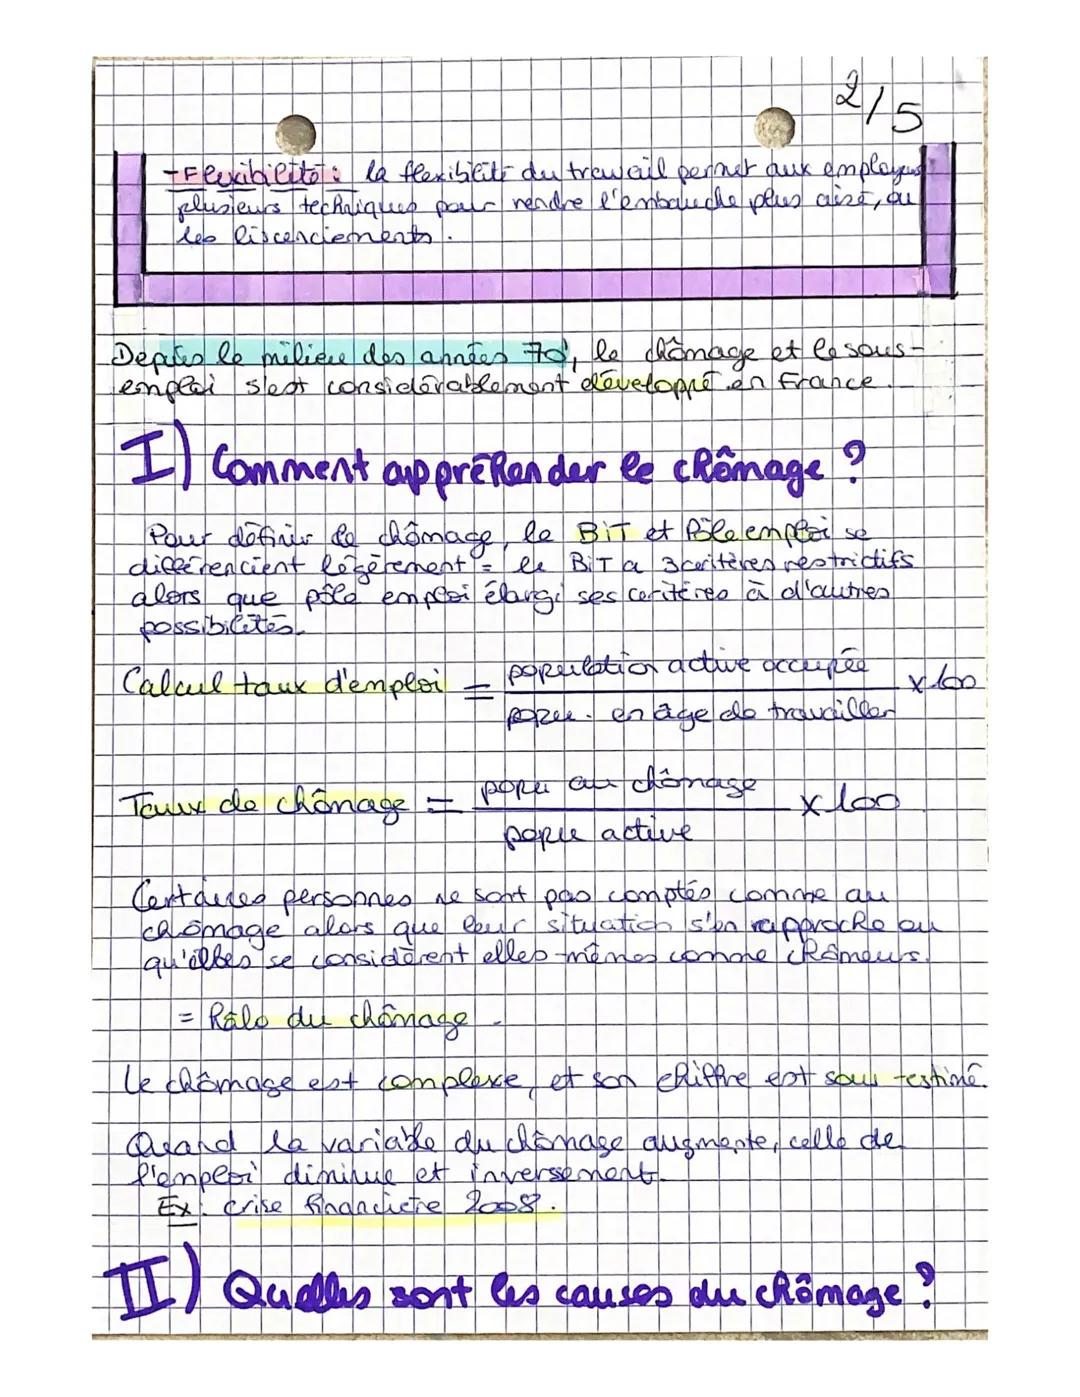 2/5
- Flexibilité : la flexibilité du travail permet aux employeurs
plusieurs techniques pour rendre l'embauche plus aisé, ou
les liscenciements.
Depuis le milieu des années 70', le chômage et le sous-
emploi s'est considérablement développé en France.
I) Comment appréhender le chômage ?
Pour définir le chômage, le BiT et Pôle emploi se
différencient légèrement = le BiT a 3 critères restrictifs
alors que pôle emploi élargi ses critères à d'autres
possibilités.
Calcul taux d'emploi = population active occupée / popu. en âge de travailler x 100
Taux de chômage = popu au chômage / popu active x 100
Certaines personnes ne sont pas comptés comme au
chômage alors que leur situation s'en rapproche ou
qu'elles se considèrent elles-mêmes comme chômeurs.
= Halo du chômage.
Le chômage est complexe, et son chiffre est sous-estimé.
Quand la variable du chômage augmente, celle de
l'emploi diminue et inversement.
Ex : crise financière 2008.
II) Quelles sont les causes du chômage ?